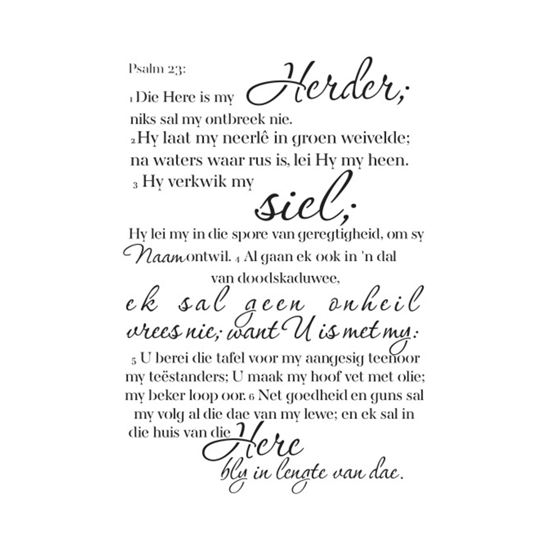 Psalm 23:
1 Die Here is my Herder;
niks sal my ontbreek nie.
2 Hy laat my neerlê in groen weivelde;
na waters waar rus is, lei Hy my heen.
3 Hy verkwik my
siel;
Hy lei my in die spore van geregtigheid, om sy
Naam ontwil. 4 Al gaan ek ook in 'n dal
van doodskaduwee,
ek sal geen onheil
vrees nie; want U is met my:
5 U berei die tafel voor my aangesig teenoor
my teëstanders; U maak my hoof vet met olie;
my beker loop oor. 6 Net goedheid en guns sal
my volg al die dae van my lewe; en ek sal in
die huis van die Here
bly in lengte van dae.